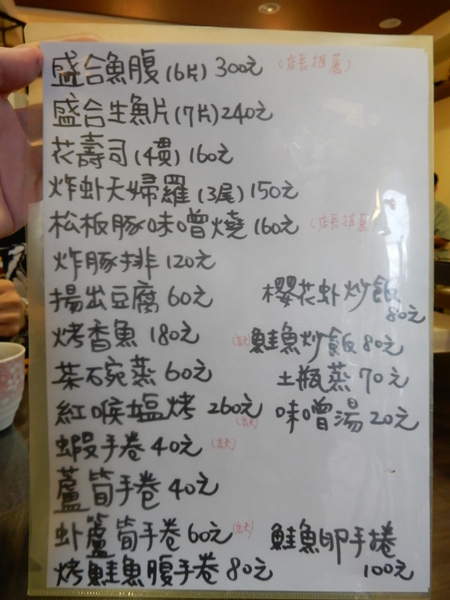 盛合魚腹(6片) 300元 (店長推薦)
盛合生魚片(7片) 240元
花壽司(4貫) 160元
炸虾天婦羅(3尾) 150元
松板豚味噌燒 160元 (店長推薦)
炸豚排 120元
揚出豆腐 60元 櫻花虾炒飯 80元
烤香魚 180元 鮭魚炒飯 80元
茶碗蒸 60元 土瓶蒸 70元
紅喉塩烤 260元 味噌湯 20元
蝦手卷 40元
蘆筍手卷 40元
虾蘆筍手卷 60元 鮭魚卵手捲
烤鮭魚腹手卷 80元 100元